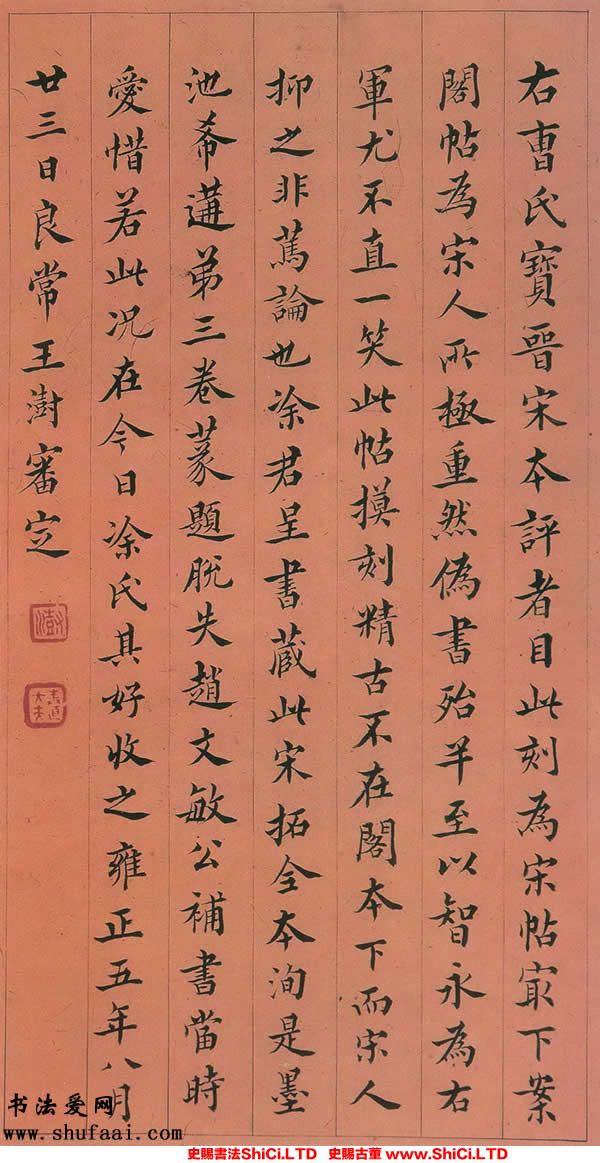 右曹氏寶晉宋本評者目此刻為宋帖㝡下案
閣帖為宋人所極重然偽書殆半至以智永為右
軍尤不直一笑此帖摸刻精古不在閣本下而宋人
抑之非篤論也涂君呈書蔵此宋拓全本洵是墨
池希遘弟三卷篆題脫失趙文敏公補書當時
愛惜若此況在今日涂氏其好收之雍正五年八月
廿三日良常王澍審定
澍
书法爱网
www.shufaai.com
史賜書法ShiCi.LTD 史賜古董 www.ShiCi.LTD